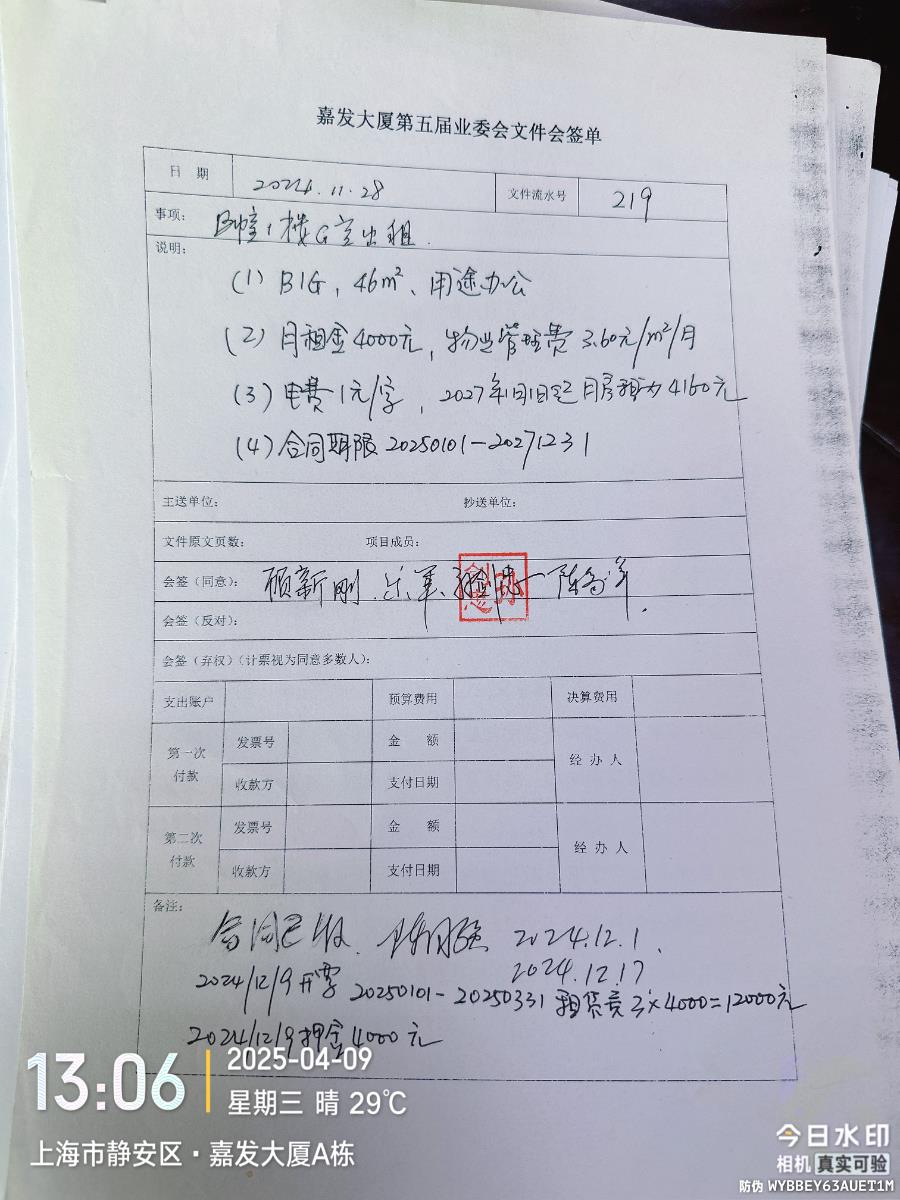 嘉发大厦第五届业委会文件会签单
日 期 2024.11.28 文件流水号 219
事项: B幢1楼G室出租.
说明:
(1) B1G, 46m²、用途办公
(2) 月租金4000元, 物业管理费 3.60元/m²/月
(3) 电费1元/字, 2027年1月1日起月房租为4160元
(4) 合同期限 20250101-20271231
主送单位: 抄送单位:
文件原文页数: 项目成员:
会签(同意): 顾新刚.乐军.
会签(反对):
会签(弃权)(计票视为同意多数人):
支出账户 预算费用 决算费用
第一次付款 发票号 金 额 经 办 人
收款方 支付日期
第二次付款 发票号 金 额 经 办 人
收款方 支付日期
备注:
合同已收. 2024.12.1.
2024.12.17
2024/12/9开票 20250101-20250331 租赁费 3×4000=12000元
2024/12/9押金4000元
13:06 2025-04-09
星期三 晴 29℃
上海市静安区·嘉发大厦A栋
今日水印
相机 真实可验
防伪 WYBBEY63AUET1M